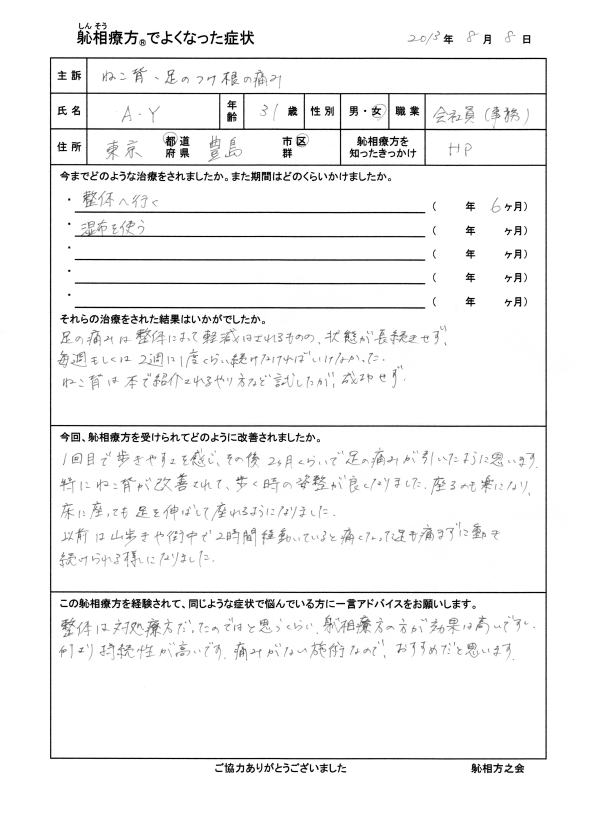 しん そう
躰相療方®でよくなった症状 2013年 8月 8日
主訴 ねこ背、足のつけ根の痛み
氏名 A・Y 年齢 31歳 性別 男・女 職業 会社員(事務)
住所 東京 都道府県 豊島 市区群 躰相療方を知ったきっかけ HP
今までどのような治療をされましたか。また期間はどのくらいかけましたか。
・整体へ行く ( 年 6ヶ月)
・湿布を使う ( 年 ヶ月)
・ ( 年 ヶ月)
・ ( 年 ヶ月)
・ ( 年 ヶ月)
それらの治療をされた結果はいかがでしたか。
足の痛みは整体によって軽減はされるものの、状態が長続きせず、
毎週もしくは2週に1度くらい続けなければいけなかった。
ねこ背は本で紹介されるやり方など試したが、成功せず。
今回、躰相療方を受けられてどのように改善されましたか。
1回目で歩きやすさを感じ、その後2ヶ月くらいで足の痛みが引いたように思います。
特にねこ背が改善されて、歩く時の姿勢が良くなりました。座るのも楽になり、
床に座っても足を伸ばして座れるようになりました。
以前は山歩きや街中で2時間程動いていると痛くなった足も痛まずに動き
続けられる様になりました。
この躰相療方を経験されて、同じような症状で悩んでいる方に一言アドバイスをお願いします。
整体は対処療方だったのではと思うくらい、躰相療方の方が効果は高いですし、
何より持続性が高いです。痛みがない施術なので、おすすめだと思います。
ご協力ありがとうございました 躰相方之会